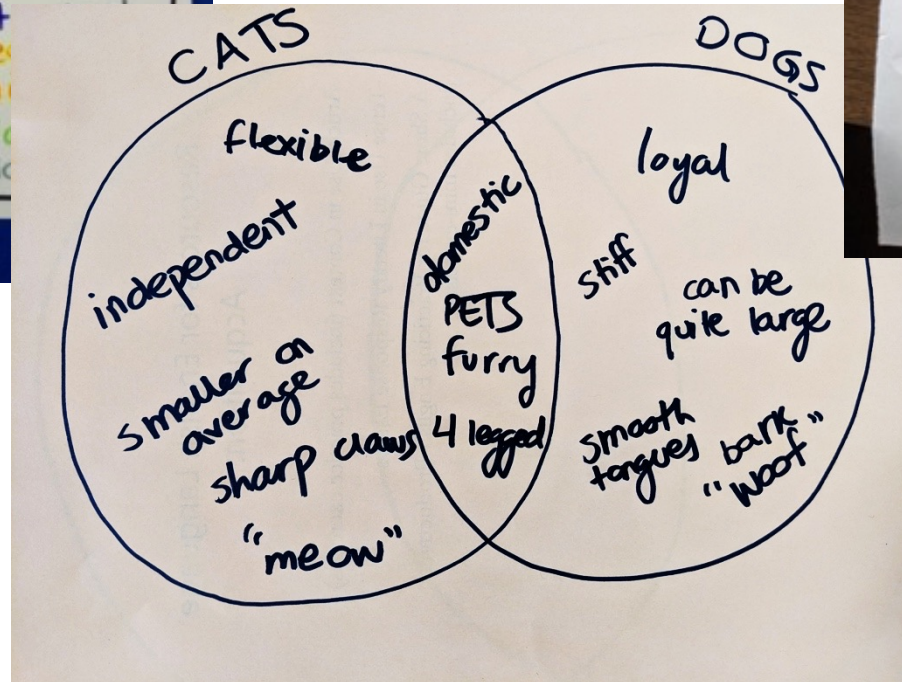 CATS
DOGS
flexible
independent
smaller on
average
sharp claws
"meow"
domestic
PETS
furry
4 legged
loyal
stiff
can be
quite large
smooth
tongues
bark
"woof"